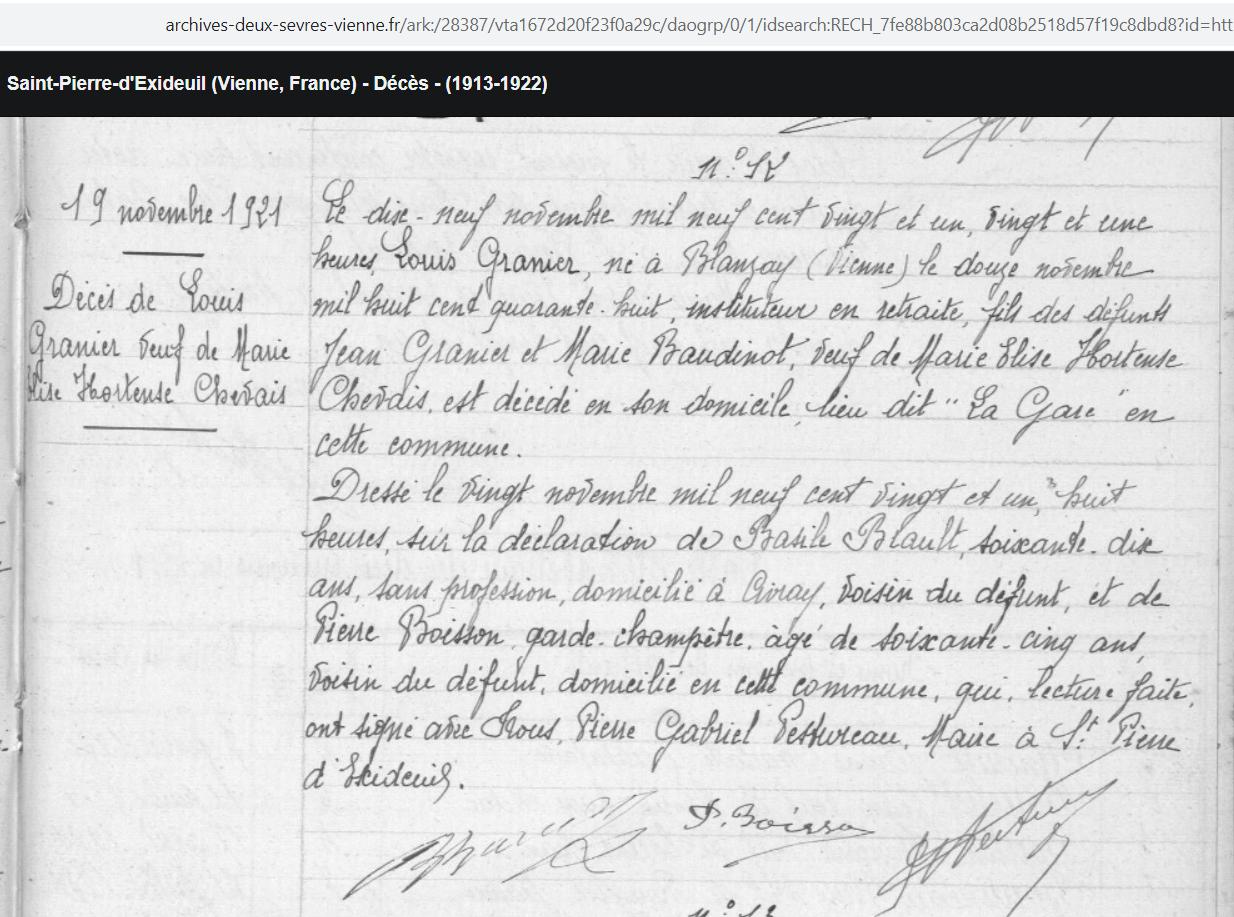 archives-deux-sevres-vienne.fr/ark:/28387/vta1672d20f23f0a29c/daogrp/0/1/idsearch:RECH_7fe88b803ca2d08b2518d57f19c8dbd8?id=htt
Saint-Pierre-d'Exideuil (Vienne, France) - Décès - (1913-1922)
19 novembre 1921
Décès de Louis
Granier veuf de Marie
Elise Hortense Chevais
n.º 12
Le dix-neuf novembre mil neuf cent vingt et un, vingt et une
heures, Louis Granier, né à Blanzay (Vienne) le douze novembre
mil huit cent quarante-huit, instituteur en retraite, fils des défunts
Jean Granier et Marie Baudinot, veuf de Marie Elise Hortense
Chevais, est décédé en son domicile, lieu dit "La Gare" en
cette commune.
Dressé le vingt novembre mil neuf cent vingt et un, huit
heures, sur la déclaration de Basile Blault, soixante-dix
ans, sans profession, domicilié à Civray, voisin du défunt, et de
Pierre Boisson, garde-champêtre, âgé de soixante-cinq ans,
voisin du défunt, domicilié en cette commune, qui, lecture faite,
ont signé avec Nous, Pierre Gabriel Pestureau, Maire à St Pierre
d'Exideuil.
P. Boisson